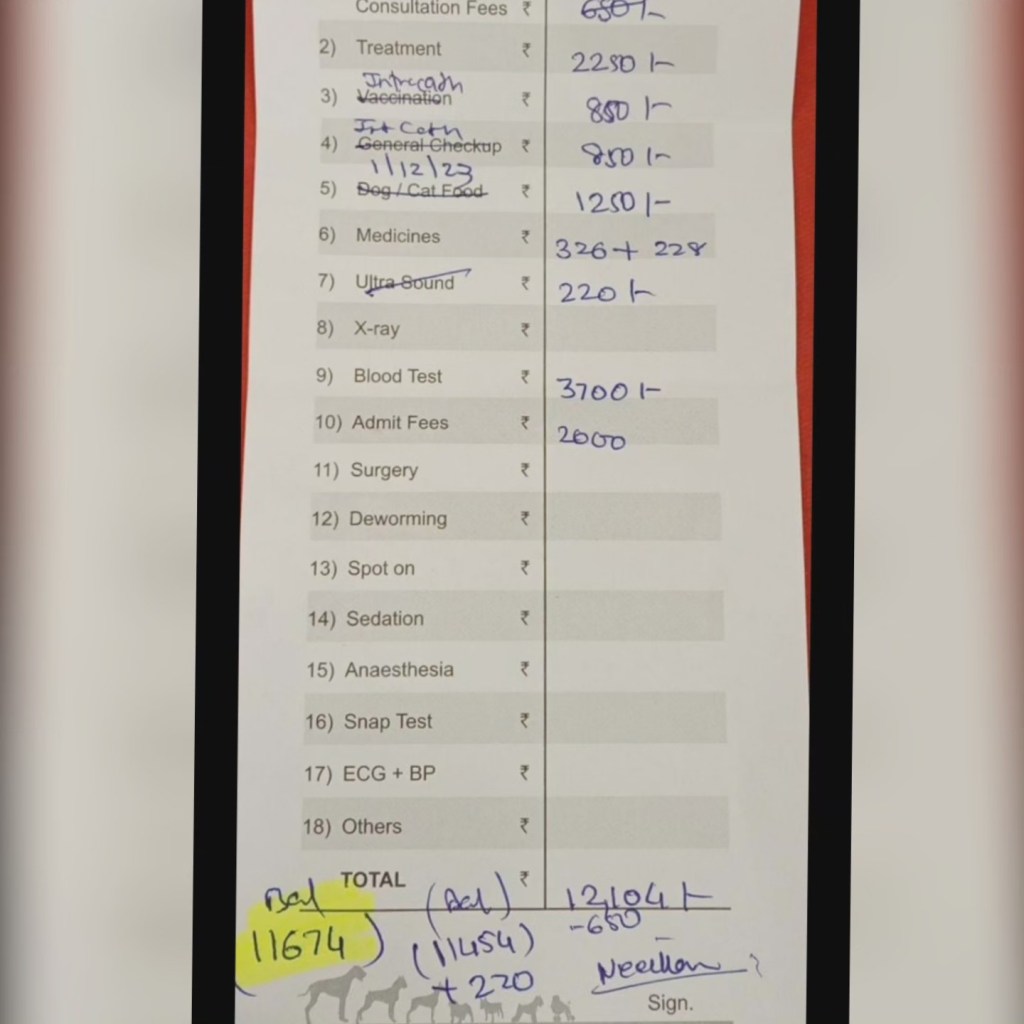 Consultation Fees ₹ 650/-
2) Treatment ₹ 2250/-
Intracath
3) Vaccination ₹ 850/-
Int Cath
4) General Checkup ₹ 850/-
1/12/23
5) Dog / Cat Food ₹ 1250/-
6) Medicines ₹ 326+ 228
7) Ultra Sound ₹ 220/-
8) X-ray ₹
9) Blood Test ₹ 3700/-
10) Admit Fees ₹ 2000
11) Surgery ₹
12) Deworming ₹
13) Spot on ₹
14) Sedation ₹
15) Anaesthesia ₹
16) Snap Test ₹
17) ECG + BP ₹
18) Others ₹
TOTAL ₹ 12,104/-
Bal (Bal) -650
11674) (11454)
+ 220
Sign.